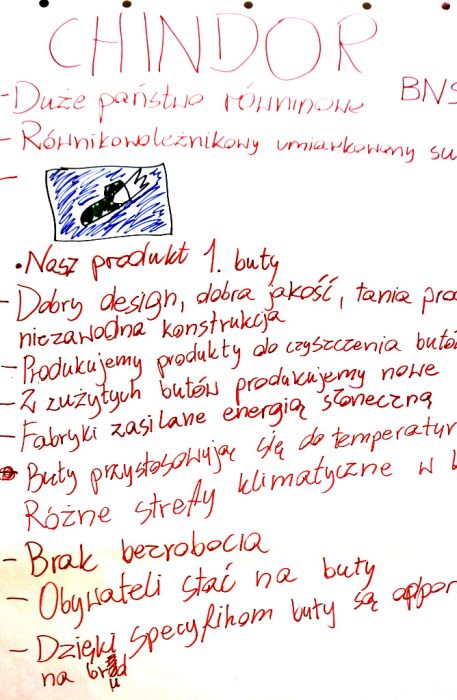 CHINDOR
- Duże państwo równinowe BNS
- Równikowoleżnikowy umiarkowany su
-
• Nasz produkt 1. buty
- Dobry design, dobra jakość, tania prod
niezawodna konstrukcja
- Produkujemy produkty do czyszczenia butów
- Z zużytych butów produkujemy nowe
- Fabryki zasilane energią słoneczną
Buty przystosowują się do temperatur
Różne strefy klimatyczne w b
- Brak bezrobocia
- Obywateli stać na buty
- Dzięki specyfikom buty są odpor
na brud